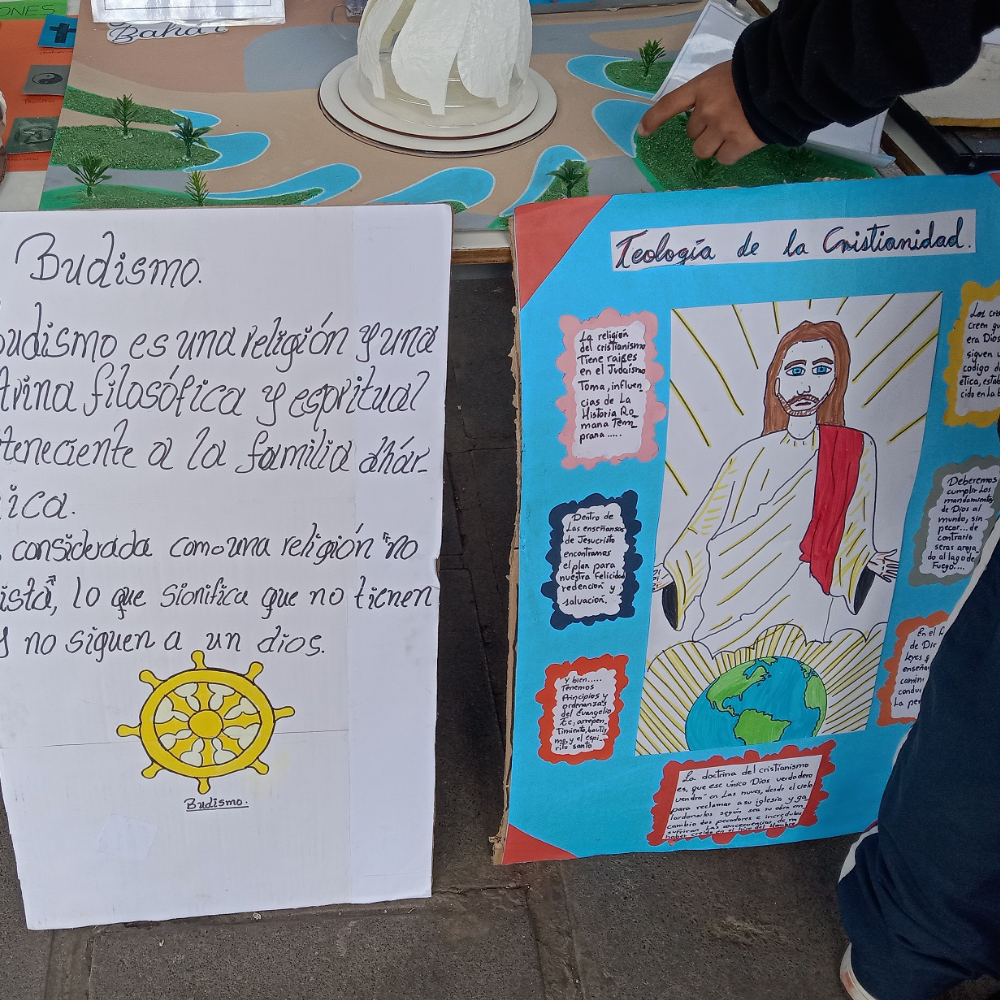 ONES
Bahai
Budismo.
budismo es una religión y una
filosófica y espritual
teneciente a la familia dhár-
ica.
considerada como una religión "no
ista", lo que significa que no tienen
y no siguen a un dios.
Budismo.
Teología de la Cristianidad.
La religión
del cristianismo
Tiene raises
en el Judaísmo
Toma, influen
cias de La
Historia Ro
mana Tem
prana.....
Dentro de
Las enseñansas
de Jesucristo
encontramos
el plan para
nuestra felicidad
redención y
salvación.
Y bien.....
Tenemos
Principios y
ordenanzas
del Evangelio
Fé, arrepen
timiento, bautis
mo, y el espi
ritu santo
La doctrina del cristianismo
es, que ese único Dios verdadero
vendrá en Las nuves, desde el cielo
para reclamar a su iglesia y ga
lardonarlos según sea su obra en
cambio los pecadores e incredulos
sufriran las
Los cris
creen q
era Dios
siguen u
codigo de
etica, estab
cido en La b
Deberemos
cumplir Los
mandamientos
de Dios al
mundo, sin
pecar... de
contrario
seras arroja
do al lago de
Fuego....
En el L
de Di
leyes y
enseña
camin
condu
La pe